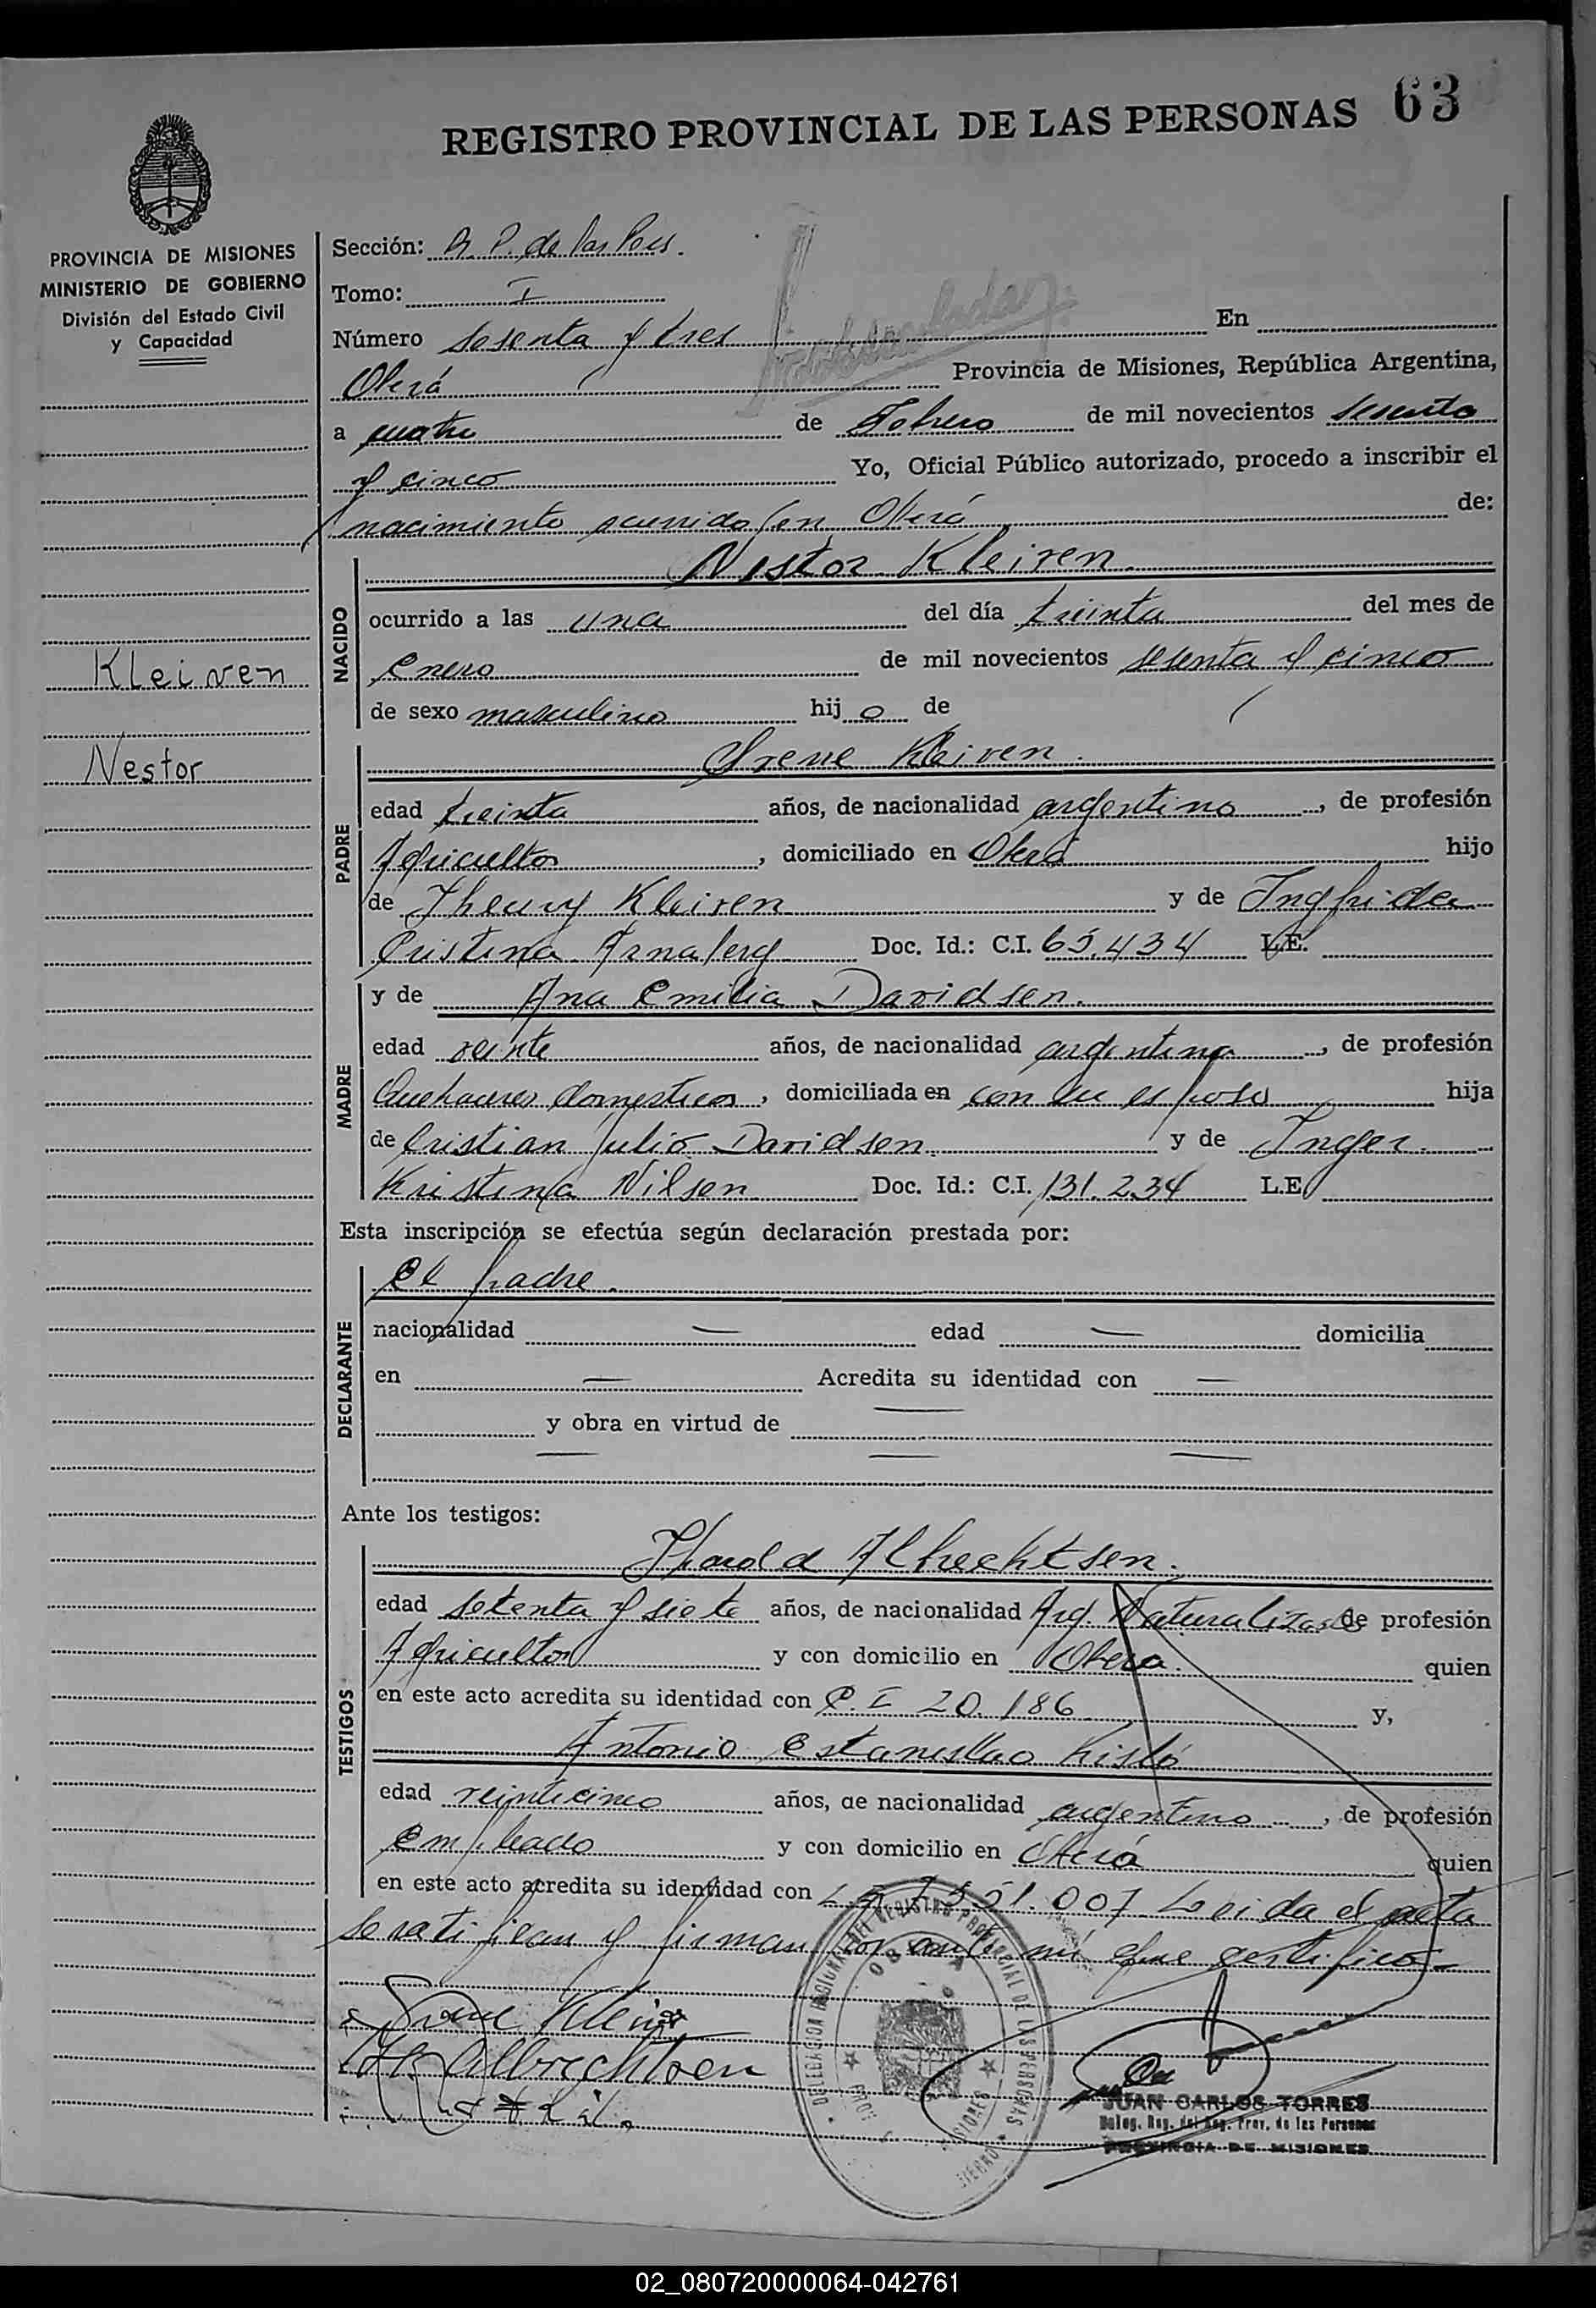 REGISTRO PROVINCIAL DE LAS PERSONAS 63
PROVINCIA DE MISIONES
MINISTERIO DE GOBIERNO
División del Estado Civil
y Capacidad
Kleiven
Nestor
Sección: R. P. de las Pers.
Tomo: I
Número sesenta y tres En
Oberá Provincia de Misiones, República Argentina,
a cuatro de Febrero de mil novecientos sesenta
y cinco Yo, Oficial Público autorizado, procedo a inscribir el
nacimiento ocurrido en Oberá de:
NACIDO
Nestor Kleiven
ocurrido a las una del día treinta del mes de
Enero de mil novecientos sesenta y cinco
de sexo masculino hijo de
PADRE
Kleiven
edad treinta años, de nacionalidad argentino, de profesión
Agricultor, domiciliado en Oberá hijo
de Kleiven y de Ingfrida
Cristina Doc. Id.: C.I. 65.434 L.E.
MADRE
y de Ana Emilia Davidsen.
edad veinte años, de nacionalidad argentina, de profesión
Quehaceres domesticos, domiciliada en con su esposo hija
de Cristian Julio Davidsen. y de Inger
Kristina Nilsen Doc. Id.: C.I. 131.234 L.E.
Esta inscripción se efectúa según declaración prestada por:
DECLARANTE
El padre.
nacionalidad — edad — domicilia
en — Acredita su identidad con —
y obra en virtud de —
— — —
Ante los testigos:
TESTIGOS
Albrechtsen.
edad setenta y siete años, de nacionalidad Arg. Naturalizado de profesión
Agricultor y con domicilio en Oberá. quien
en este acto acredita su identidad con C. I 20.186 y,
Antonio Estanislao
edad veinticinco años, de nacionalidad argentino, de profesión
Empleado y con domicilio en Oberá quien
en este acto acredita su identidad con L.E. 7.551.007 Leida el acta
se ratifican y firman por ante mi que certifico
Albrechtsen
DELEGACION REGIONAL DEL REGISTRO PROVINCIAL DE LAS PERSONAS
OBERA
MISIONES
JUAN CARLOS TORRES
Deleg. Reg. del Reg. Prov. de las Personas
PROVINCIA DE MISIONES
02_080720000064-042761